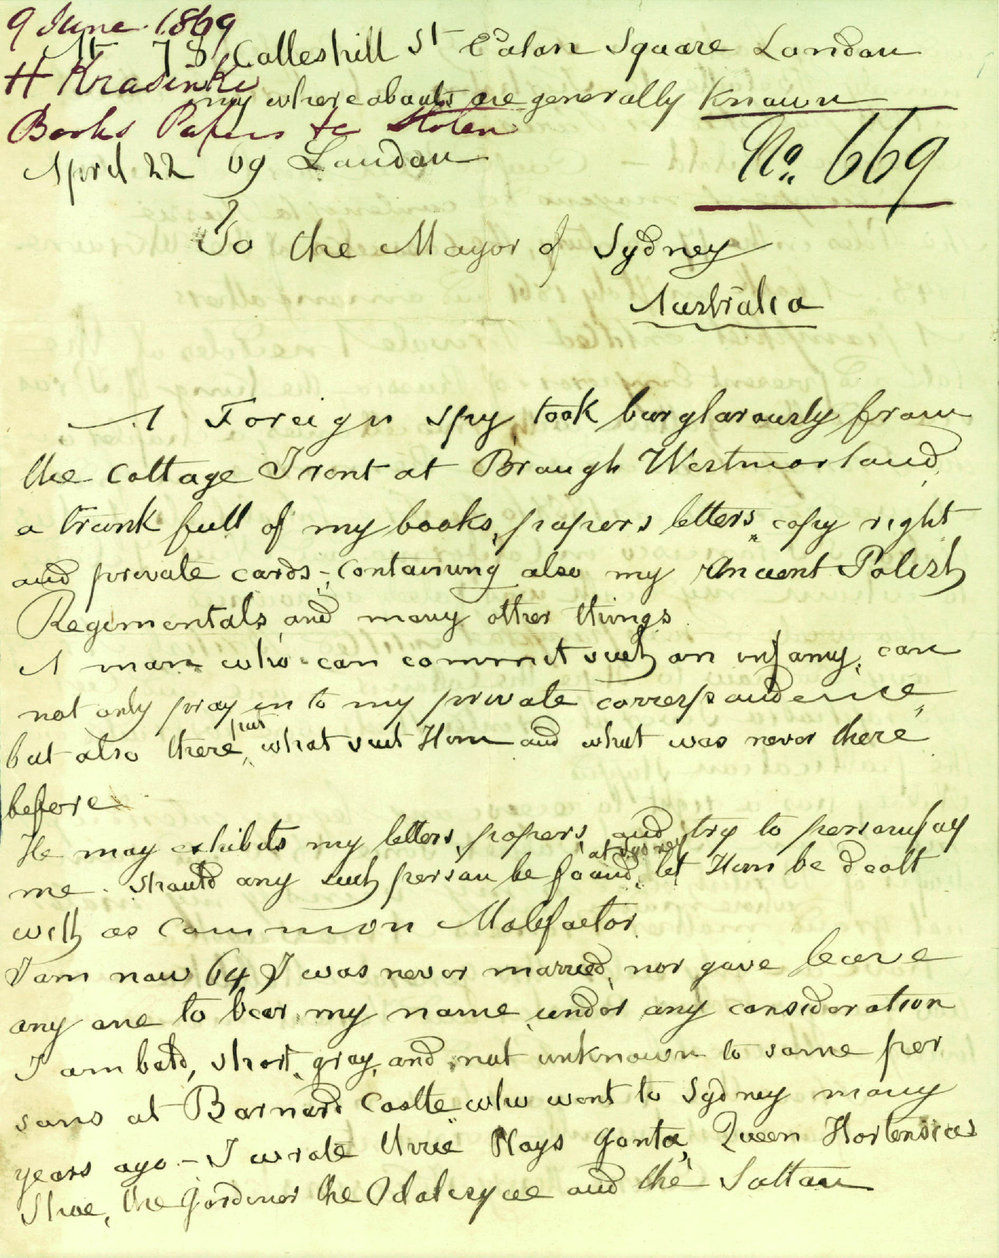 9 June 1869
At 78 Colleshill St Eaton Square London
H Krasinki
my whereabouts are generally known
Books Papers &c Stolen
No. 669
April 22 69 London
To the Mayor of Sydney
Australia
A Foreign spy took burglarously from
the cottage I rent at Brough Westmorland
a trunk full of my books, papers letters, copy right
and private cards, containing also my Ancient Polish
Regimentals, and many other things
A man who can commit such an infamy, can
not only pray in to my private correspondence,
but also there put what suit Him and what was never there
before
He may exhibits my letters, papers, and try to
me. Should any such person be found, at Sydney let Him be dealt
with as common Malefactor.
I am now 64 I was never married, nor gave leave
any one to bear my name under any consideration
I am bald, short, gray, and not unknown to some per
sons at Barnard Castle who went to Sydney many
years ago - I wrote three Plays Gonta, Queen Hortensias
Shoe, the Gardiner the Odalisque and the Sultan